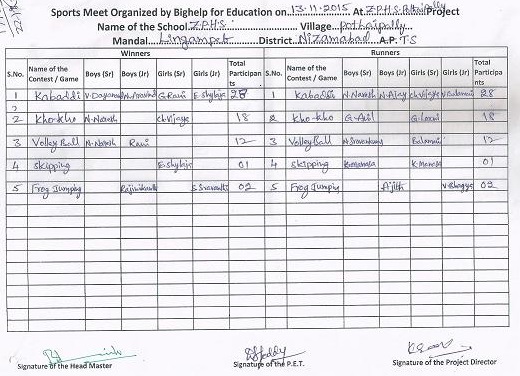 Sports Meet Organized by Bighelp for Education on 13-11-2015 At Z.P.H.S. Project
Name of the School Z.P.H.S. Village pothaipally
Mandal Lingampet District Nizamabad A.P TS
Winners Runners
S.No. Name of the Contest / Game Boys (Sr) Boys (Jr) Girls (Sr) Girls (Jr) Total Participants S.No. Name of the Contest / Game Boys (Sr) Boys (Jr) Girls (Sr) Girls (Jr) Total Participants
1 Kabaddi G.Rani E.Shylaja 28 1 Kabaddi N.Naresh N.Ajay 28
2 kho-kho N.Naresh ch.Vijaya 18 2 kho-kho G.Anil G.Laxmi 18
3 Volley Ball N.Naresh Ravi 12 3 Volley Ball 12
4 Skipping E.Shylaja 01 4 Skipping K.Mamata 01
5 Frog Jumping 02 5 Frog Jumping Ajith 02
Signature of the Head Master Signature of the P.E.T. Signature of the Project Director